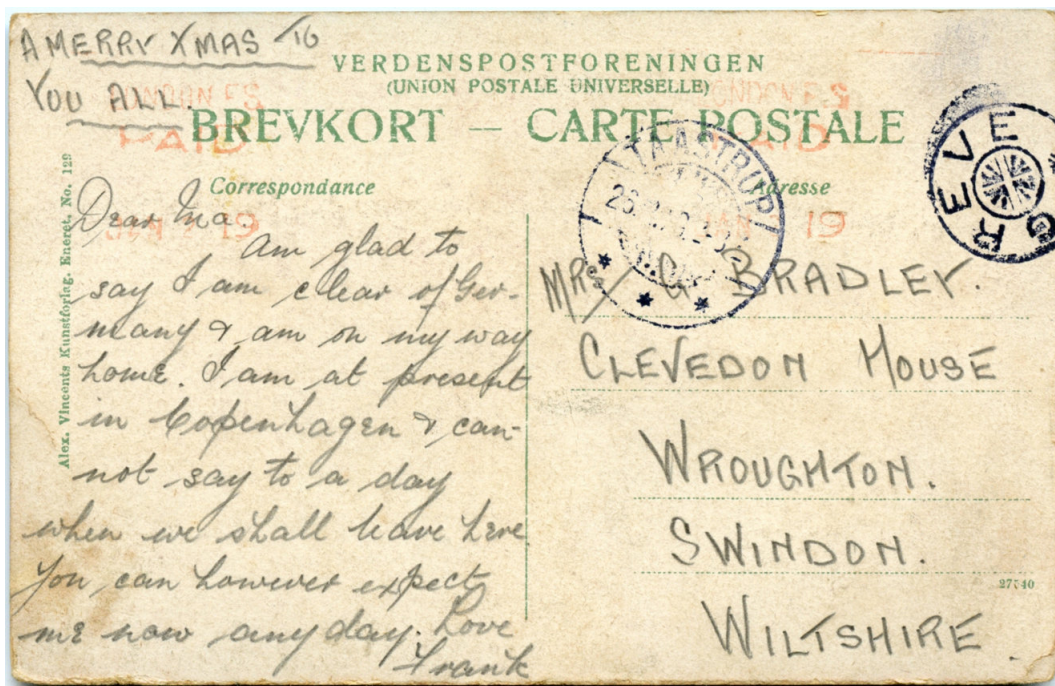 A MERRY XMAS TO
YOU ALL.
VERDENSPOSTFORENINGEN
(UNION POSTALE UNIVERSELLE)
BREVKORT — CARTE POSTALE
LONDON F.S.
PAID
JAN 19
LONDON F.S.
PAID
JAN 19
TAASTRUP
GREVE
Alex. Vincents Kunstforlag. Eneret. No. 129
Correspondance
Dear Ma
Am glad to
say I am clear of Ger-
many & am on my way
home. I am at present
in Copenhagen & can-
not say to a day
when we shall leave here
You can however expect
me now any day. Love
Frank
Adresse
Mrs G BRADLEY.
CLEVEDON HOUSE
WROUGHTON.
SWINDON.
WILTSHIRE.